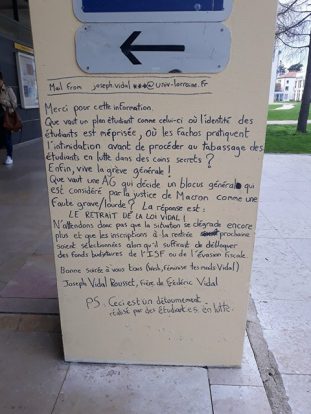 Mail from joseph.vidal ***@univ-lorraine.fr
Merci pour cette information.
Que vaut un plan étudiant comme celui-ci où l'identité des
étudiants est méprisée, où les fachos pratiquent
l'intimidation avant de procéder au tabassage des
étudiants en lutte dans des coins secrets ?
Enfin, vive la grève générale !
Que vaut une AG qui décide un blocus général qui
est considéré par la justice de Macron comme une
faute grave/lourde ? La réponse est :
LE RETRAIT DE LA LOI VIDAL !
N'attendons donc pas que la situation se dégrade encore
plus et que les inscriptions à la rentrée prochaine
soient sélectionnées alors qu'il suffirait de débloquer
des fonds budgétaires de l'ISF ou de l'évasion fiscale.
Bonne soirée à vous tous (tards, féminise tes mails Vidal)
Joseph Vidal Rousset, frère de Frédéric Vidal
PS. Ceci est un détournement
réalisé par des étudiant.e.s en lutte.